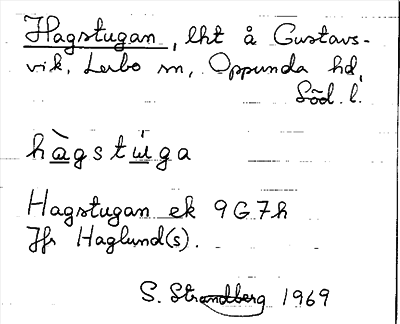 Hagstugan, lht å Gustavs-
vik, Lerbo sn, Oppunda hd,
Söd. l.
hàgstùga
Hagstugan ek 9G7h
Jfr Haglund(s).
S. Strandberg 1969